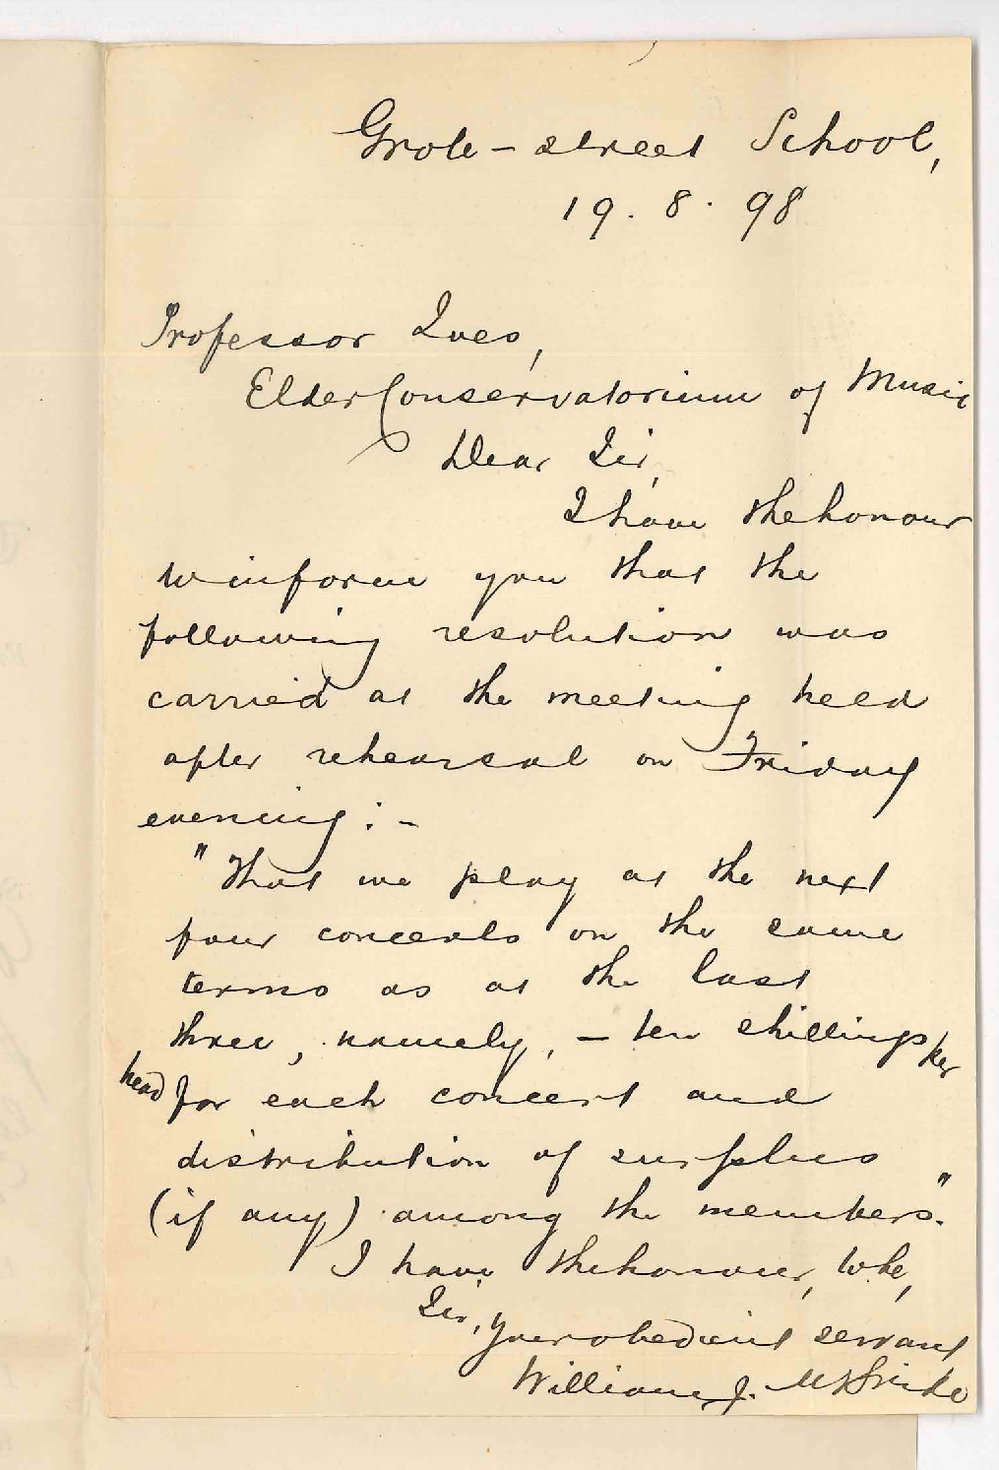 Grote-street School,
19. 8. 98
Professor Ives,
Elder Conservatorium of Music
Dear Sir,
I have the honour
to inform you that the
following resolution was
carried at the meeting held
after rehearsal on Friday
evening:-
"That we play at the next
four concerts on the same
terms as at the last
three, namely, - ten shillings per
head for each concert and
distribution of surplus
(if any) among the members."
I have the honour, to be,
Sir,
Your obedient servant
William J.